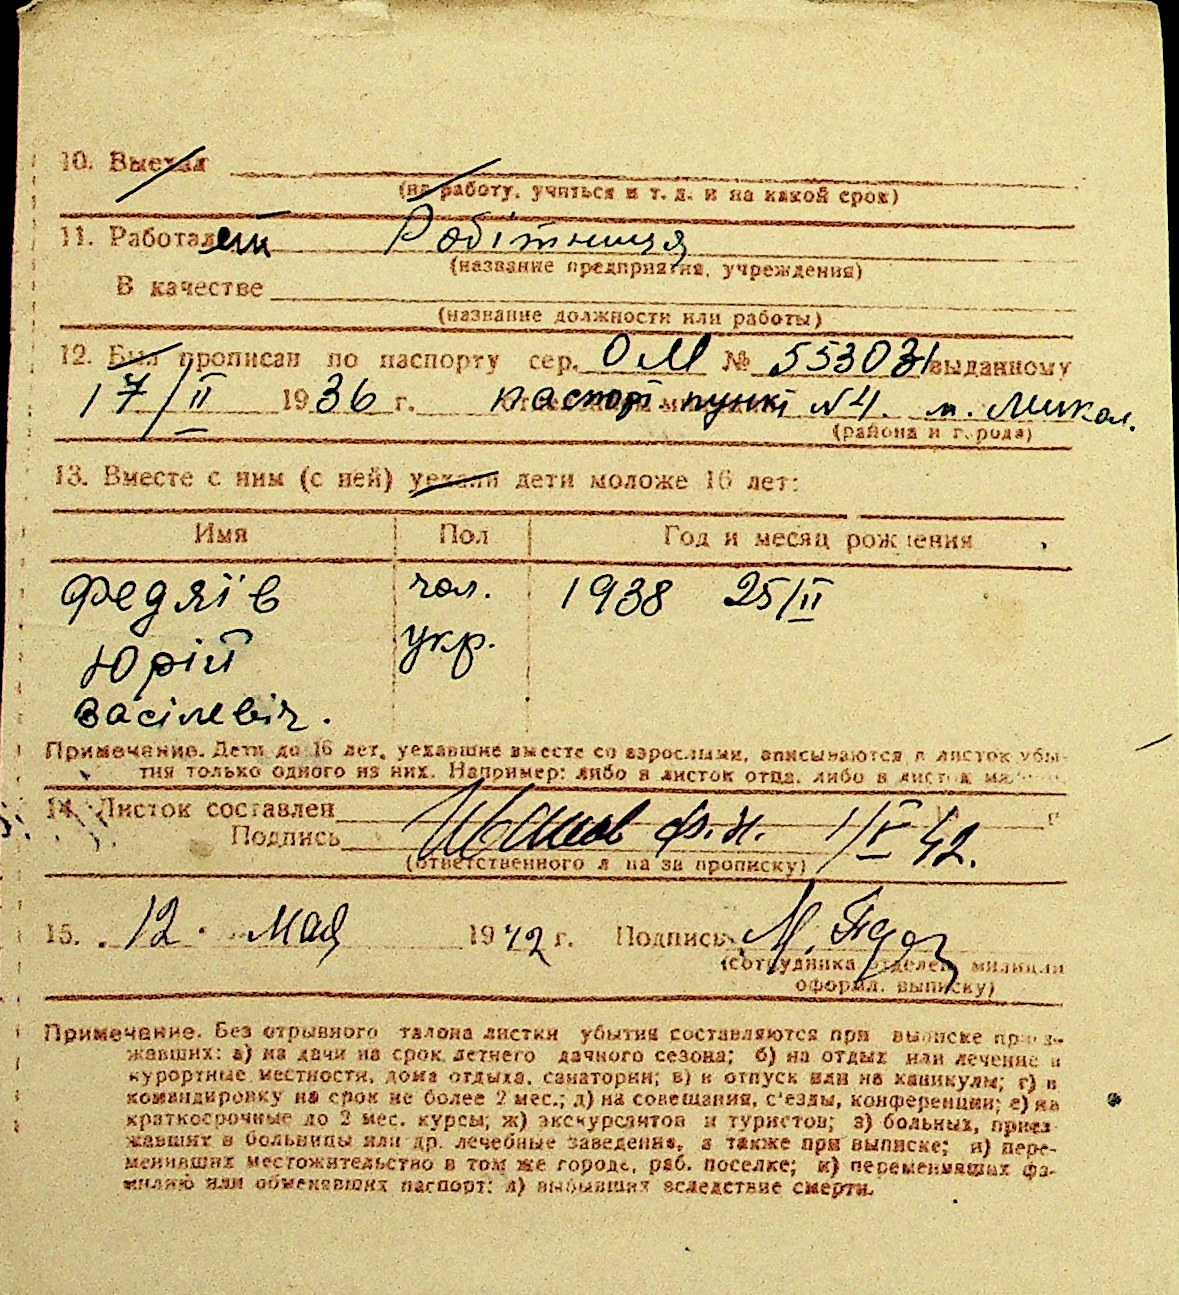 10. Выехал
(на работу, учиться и т. д. и на какой срок)
11. Работает Робітниця
(название предприятия, учреждения)
В качестве
(название должности или работы)
12. Был прописан по паспорту сер. ОМ № 553031 выданному
17/II 1936 г. паспорт. пункт №4. м. Микол.
(района и города)
13. Вместе с ним (с ней) уехали дети моложе 16 лет:
Имя Пол Год и месяц рождения
Федяїв чол. 1938 25/II
Юрій укр.
Васілевіч.
Примечание. Дети до 16 лет, уехавшие вместе со взрослыми, вписываются в листок убы-
тия только одного из них. Например: либо в листок отца, либо в листок
14. Листок составлен г.
Подпись Иванов Ф.И. 1/V 42.
(ответственного за прописку)
15. 12. мая 1942 г. Подпись М.
(сотрудника отделен. милиции
оформл. выписку)
Примечание. Без отрывного талона листки убытия составляются при выписке приез-
жавших: а) на дачи на срок летнего дачного сезона; б) на отдых или лечение в
курортные местности, дома отдыха, санатории; в) в отпуск или на каникулы; г) в
командировку на срок не более 2 мес.; д) на совещания, с'езды, конференции; е) на
краткосрочные до 2 мес. курсы; ж) экскурсантов и туристов; з) больных, приез-
жавших в больницы или др. лечебные заведения, а также при выписке; и) пере-
менивших местожительство в том же городе, раб. поселке; к) переменивших фа-
милию или обменявших паспорт; л) выбывших вследствие смерти.